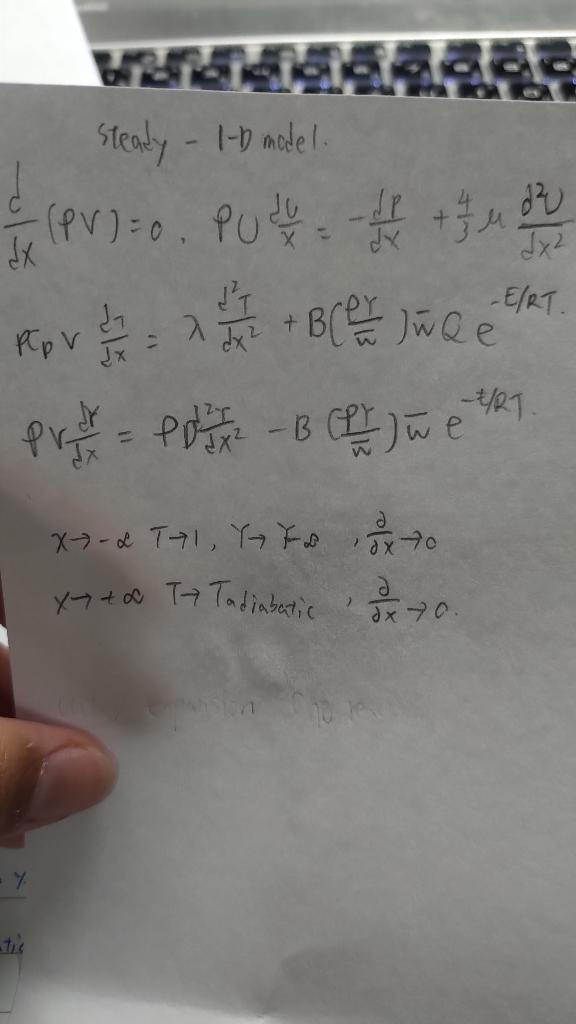 steady - 1-D model.
d/dx (ρV) = 0, ρU dU/x = - dP/dx + 4/3 μ d²U/dx²
ρCp V dT/dx = λ d²T/dx² + B(ρY/w̄) w̄ Q e^-E/RT.
ρV dY/dx = ρD d²Y/dx² - B (ρY/w̄) w̄ e^-E/RT.
x→-∞ T→1, Y→Y-∞, ∂/∂x→0
x→+∞ T→Tadiabatic, ∂/∂x→0.
expansion